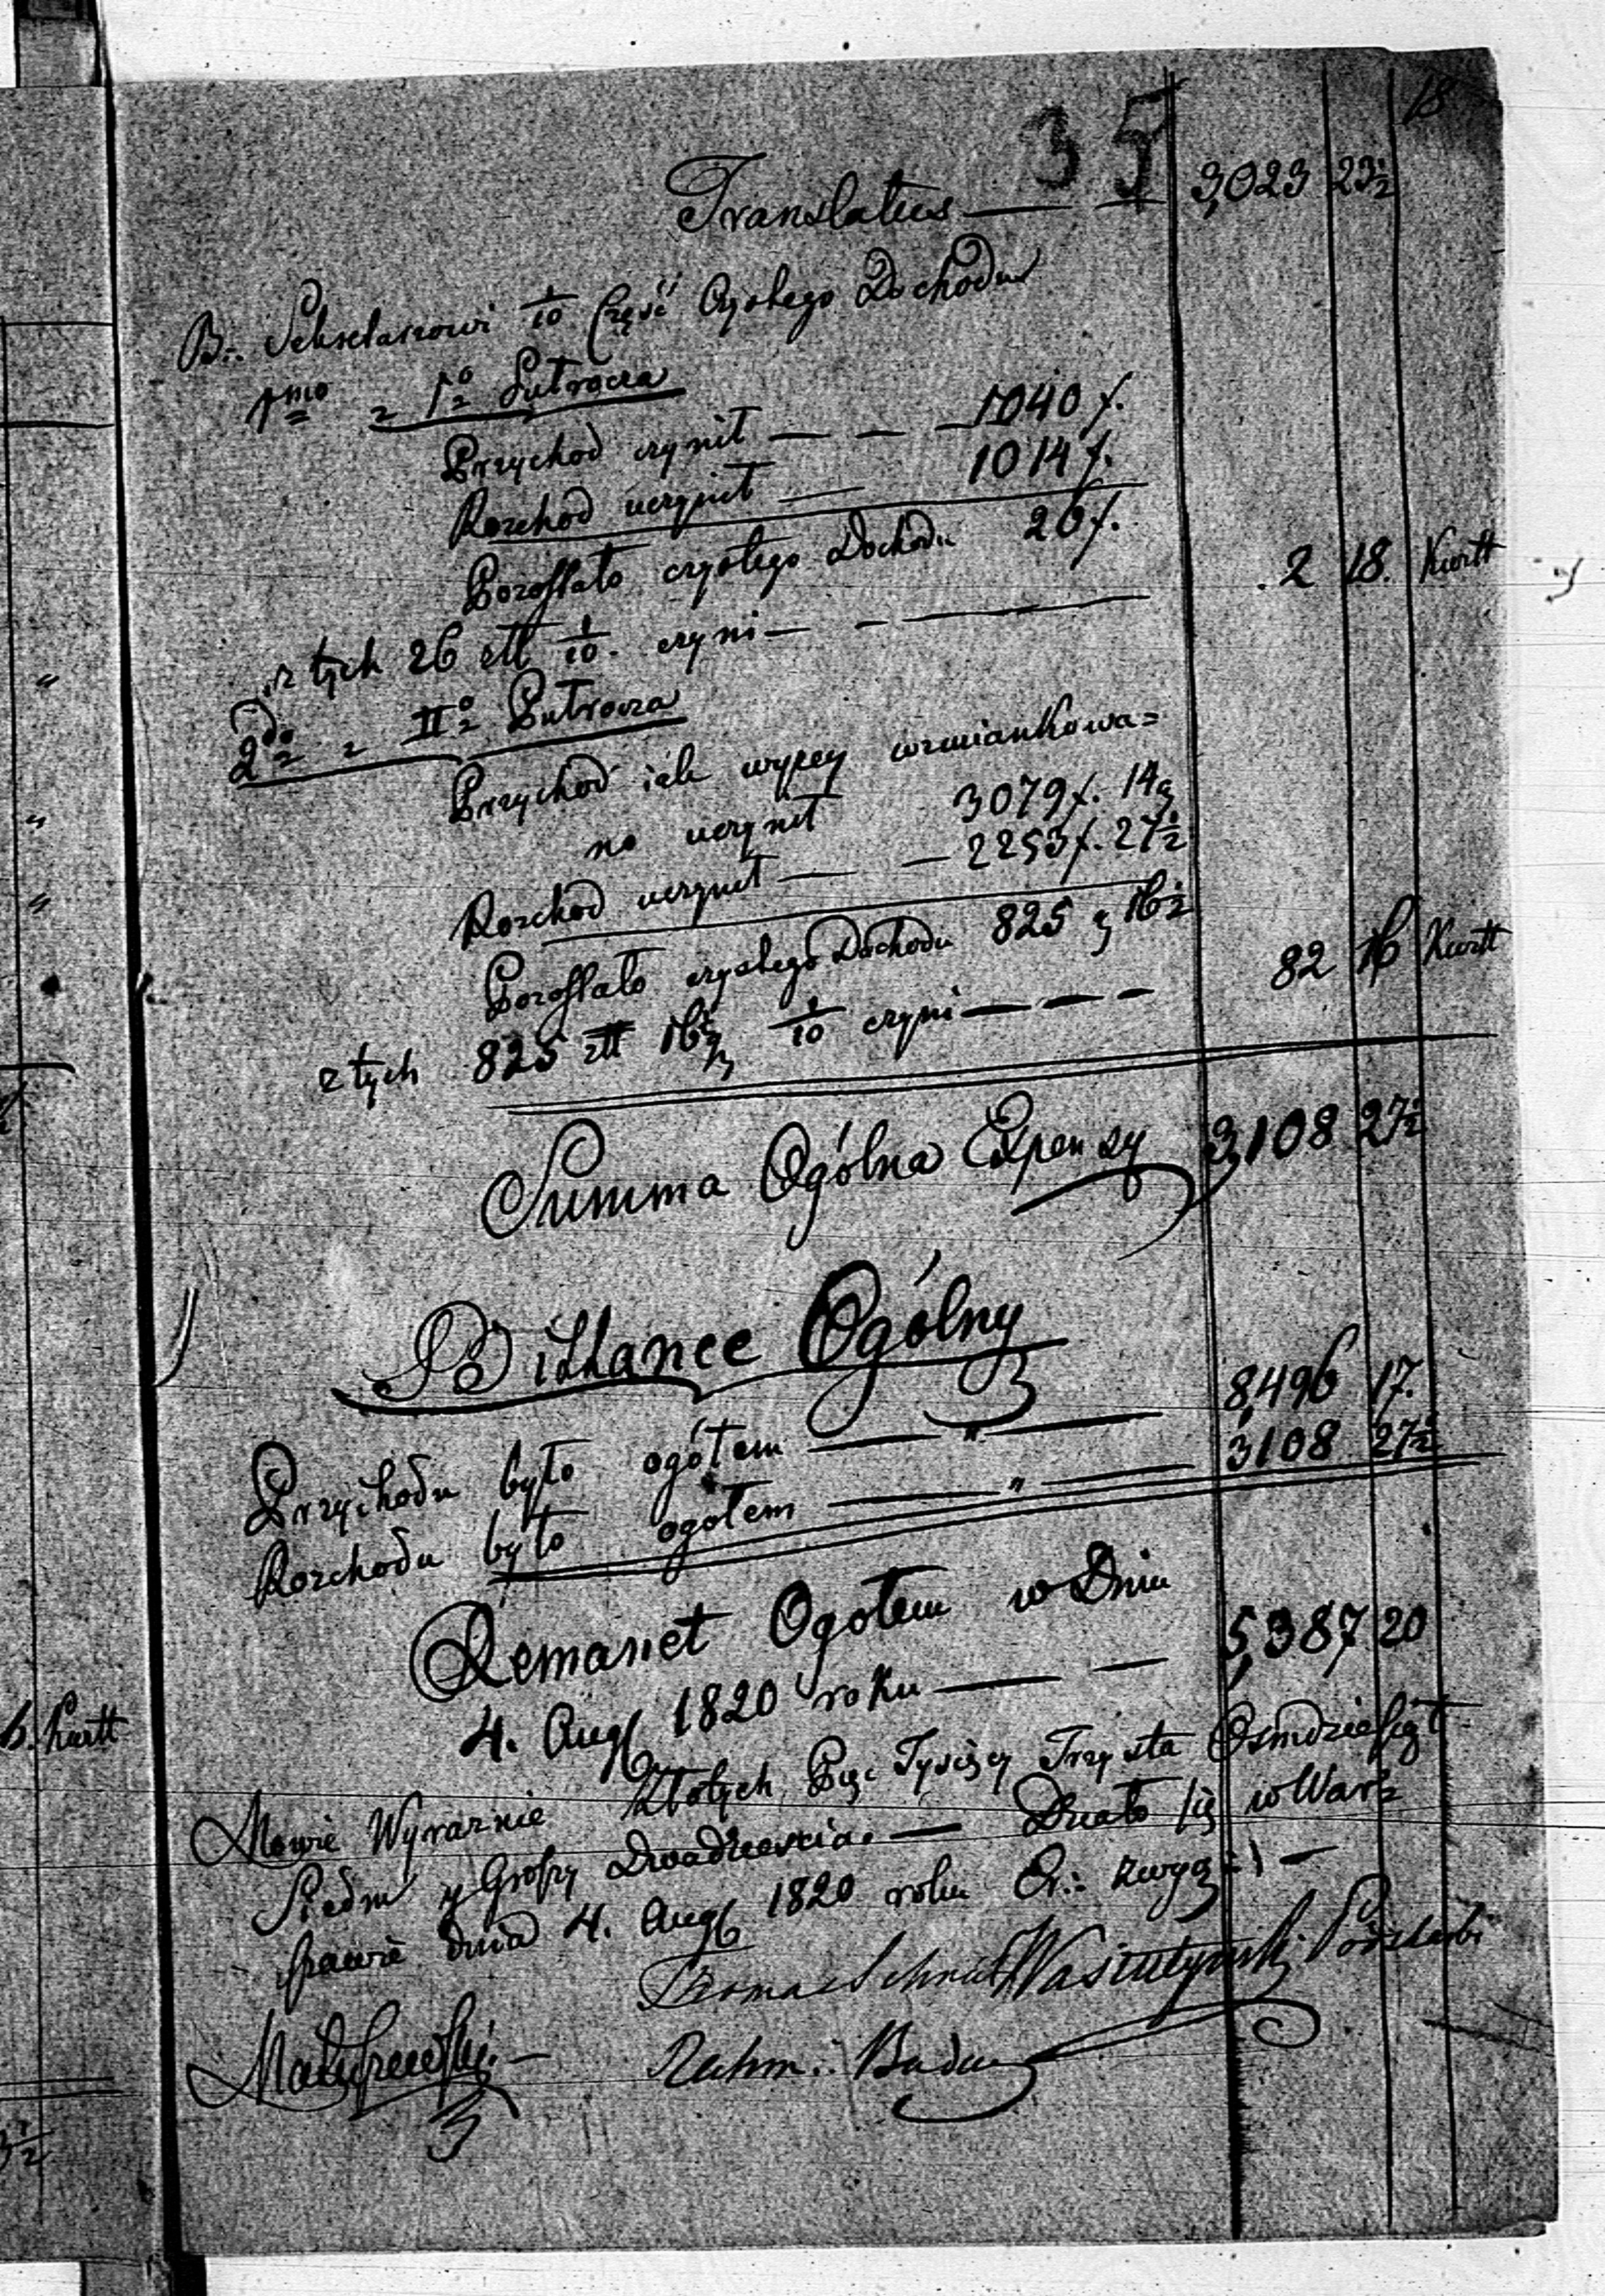 18
35
Translatus — — 3,023 23½
B∴ Sekretarzowi 1/10 Część Czystego Dochodu
1mo z Io Putrocza
Przychod czynił — — — 1040 f.
Rozchod uczynił — 1014 f.
Pozostało czystego Dochodu 26 f.
z tych 26 ztt 1/10 czyni — — — . 2 18. Kwitt
2do z IIo Putrocza
Przychod iak wyzey wzmiankowa=
no uczynił 3079 f. 14 g
Rozchod uczynił — — 2253 f. 27½
Pozostało czystego Dochodu 825 g 16½
z tych 825 ztt 16½ g 1/10 czyni — — — 82 16 Kwitt
Summa Ogólna Expensy 3,108 27½
Billance Ogólny
Przychodu było ogółem — " — 8,496 17.
Rozchodu było ogółem — " — 3108 27½
Remanet Ogołem w Dniu
4. Aug 1820 roku — — 5,387 20
Mowie Wyraznie Złotych Pięc Tysięcy Trzysta Osmdziesiąt
Siedm y Groszy Dwadziescia. — Działo się w Warsz
szawie dnia 4. Aug 1820 roku Er∴ zwycz:) —
Wasiutynski Podskarbi
Rahm:
b. Kwitt